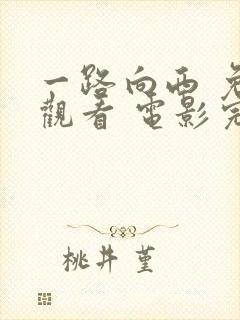 一路向西
觀看 電影
桃井 堇